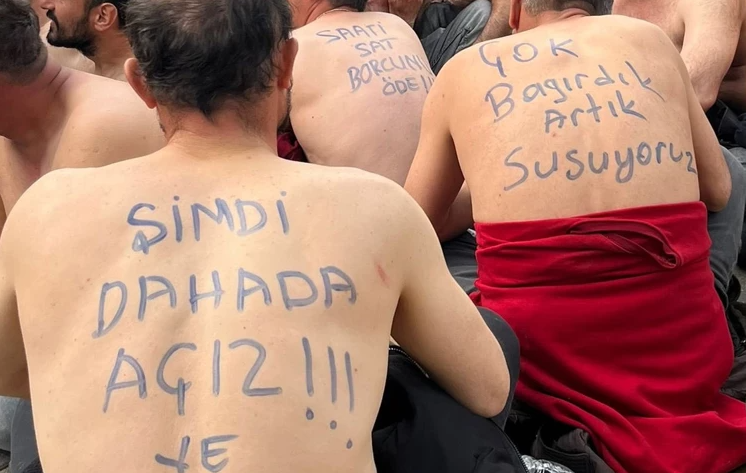 SAATİ
SAT
BORCUNU
ÖDE!!
ÇOK
Bağırdık
Artık
Susuyoruz
ŞİMDİ
DAHADA
AÇIZ!!!
YE